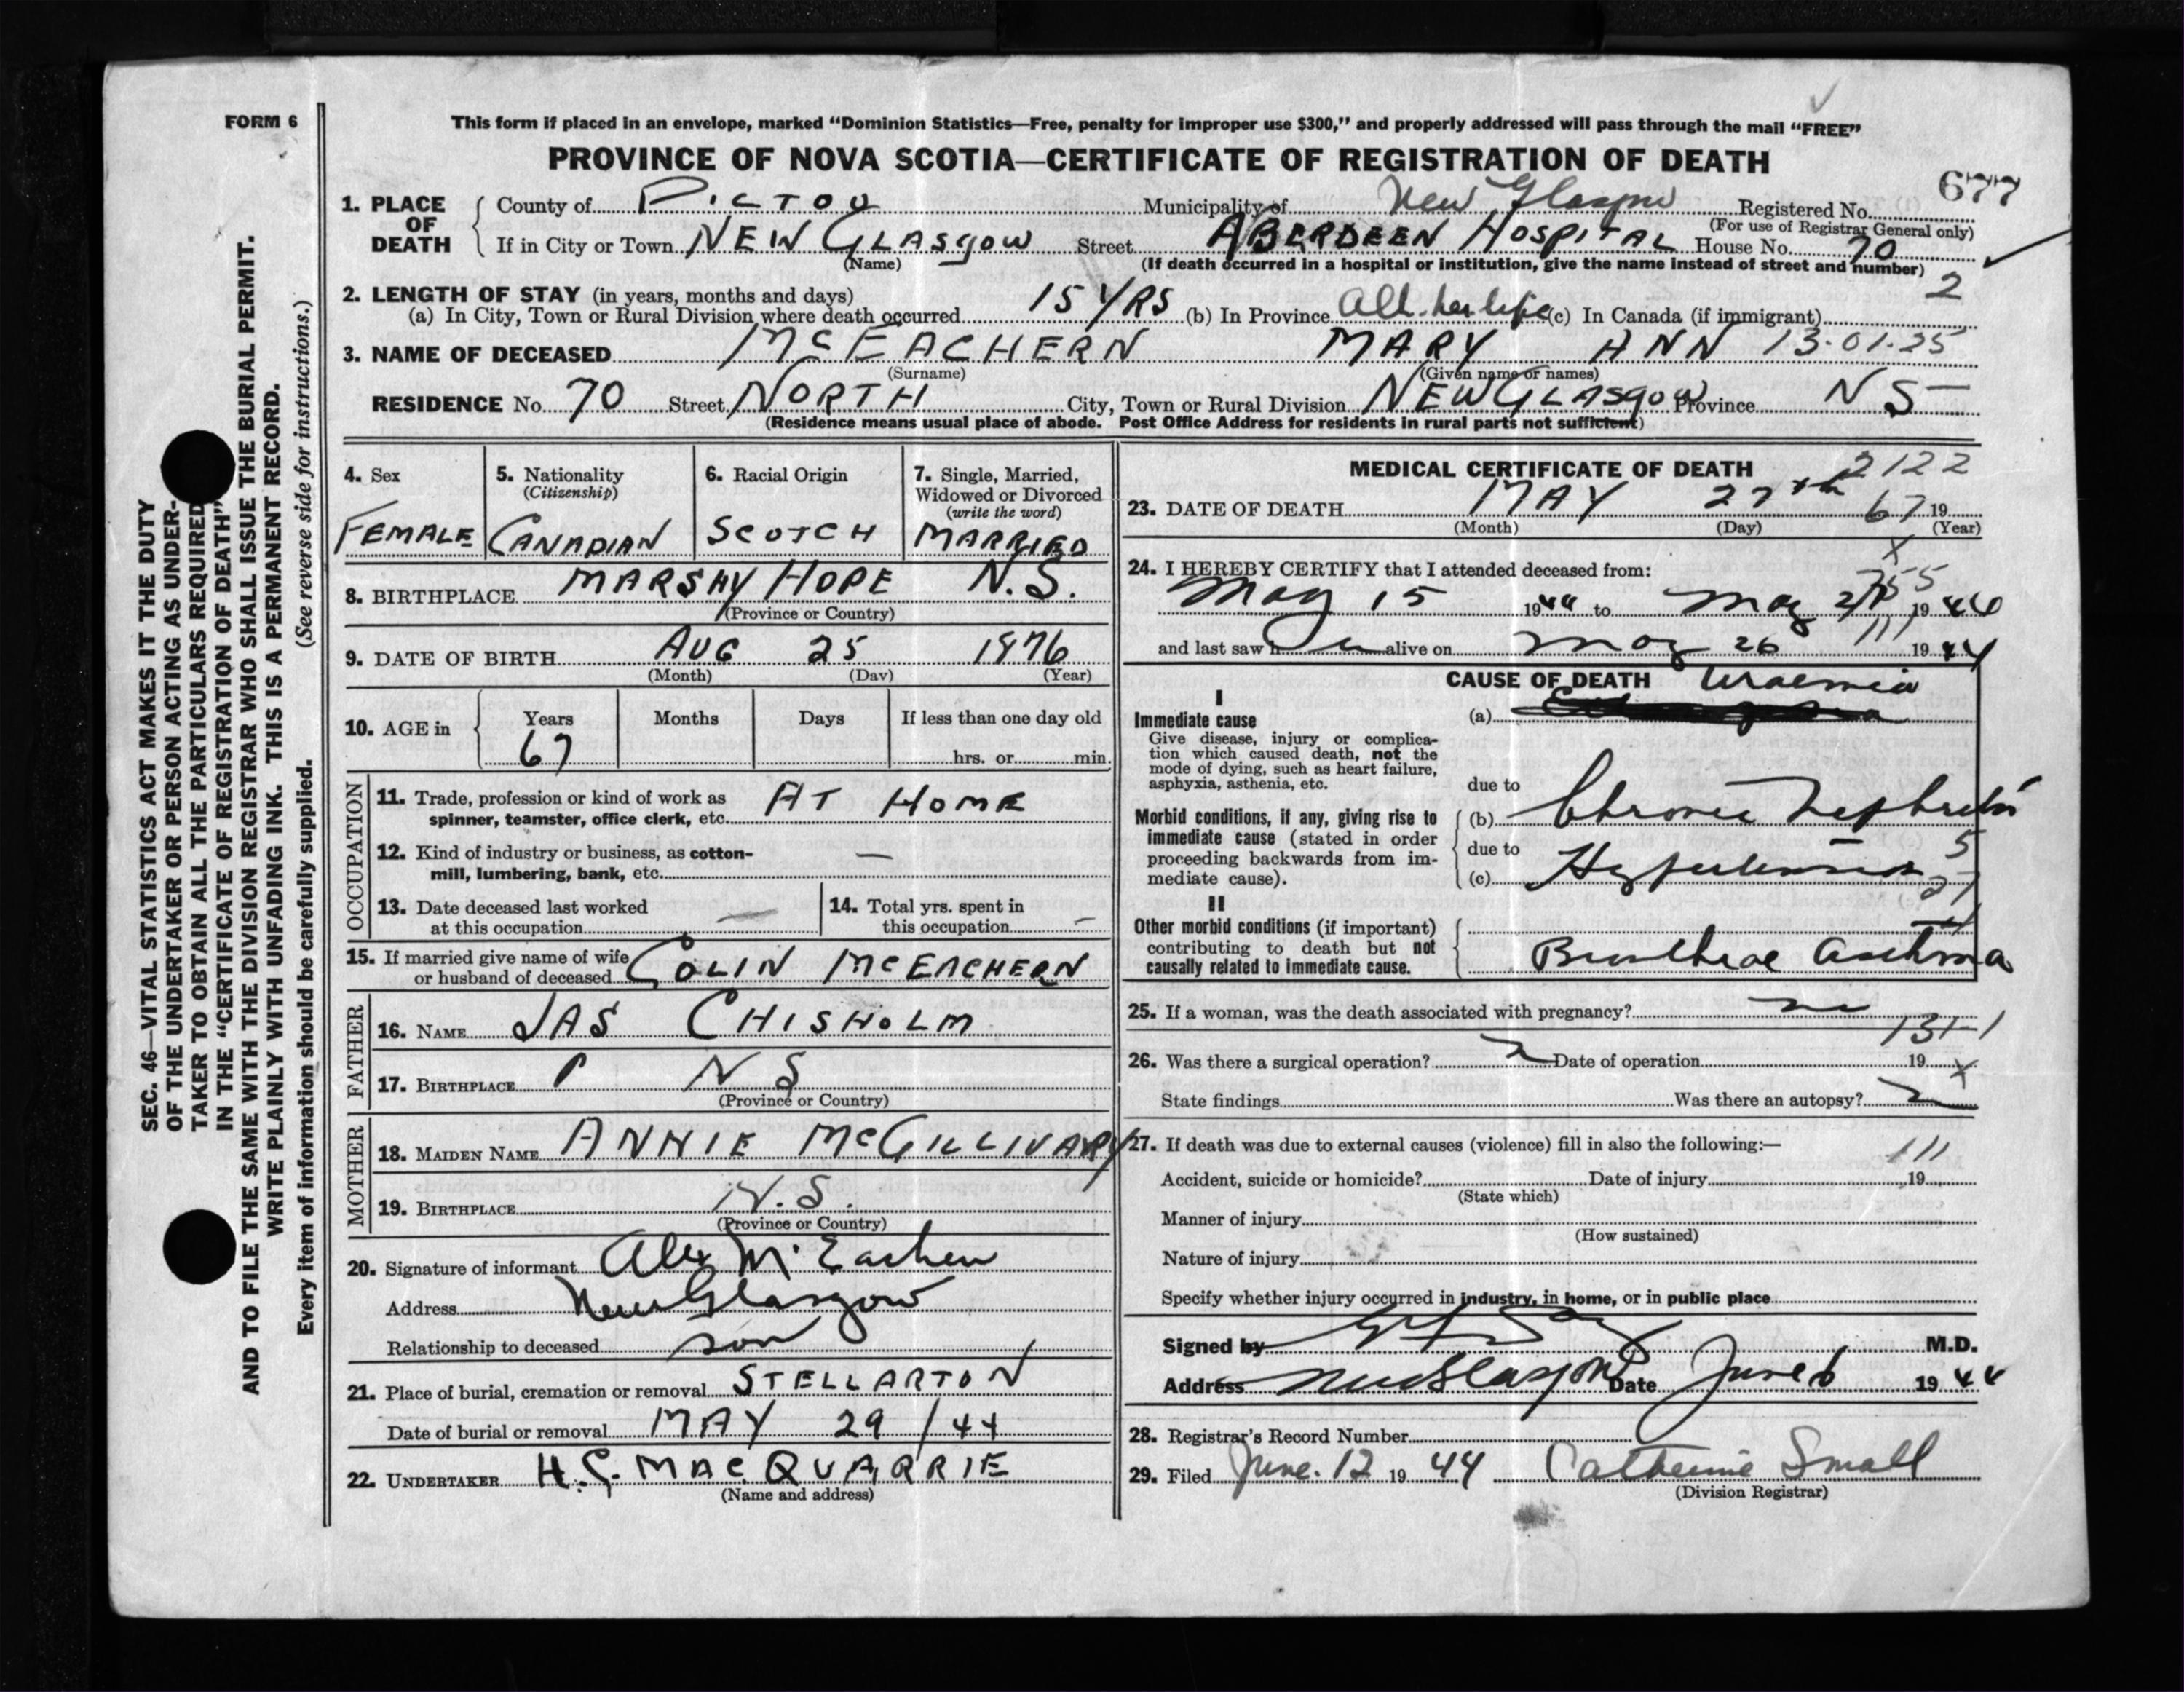 FORM 6
This form if placed in an envelope, marked “Dominion Statistics—Free, penalty for improper use $300,” and properly addressed will pass through the mail “FREE”
PROVINCE OF NOVA SCOTIA—CERTIFICATE OF REGISTRATION OF DEATH
677
1. PLACE OF DEATH
County of PICTOU Municipality of New Glasgow Registered No.
(For use of Registrar General only)
If in City or Town NEW GLASGOW Street ABERDEEN HOSPITAL House No. 70
(Name) (If death occurred in a hospital or institution, give the name instead of street and number)
2. LENGTH OF STAY (in years, months and days) 2
(a) In City, Town or Rural Division where death occurred 15 YRS (b) In Province All her life (c) In Canada (if immigrant)
3. NAME OF DECEASED McEACHERN MARY ANN 13-01-25
(Surname) (Given name or names)
RESIDENCE No. 70 Street NORTH City, Town or Rural Division NEW GLASGOW Province N S
(Residence means usual place of abode. Post Office Address for residents in rural parts not sufficient)
4. Sex FEMALE
5. Nationality (Citizenship) CANADIAN
6. Racial Origin SCOTCH
7. Single, Married, Widowed or Divorced (write the word) MARRIED
8. BIRTHPLACE MARSHY HOPE N.S.
(Province or Country)
9. DATE OF BIRTH AUG 25 1876
(Month) (Day) (Year)
10. AGE in Years 67 Months Days If less than one day old
hrs. or min.
OCCUPATION
11. Trade, profession or kind of work as spinner, teamster, office clerk, etc. AT HOME
12. Kind of industry or business, as cotton-mill, lumbering, bank, etc. —
13. Date deceased last worked at this occupation —
14. Total yrs. spent in this occupation —
15. If married give name of wife or husband of deceased COLIN McEACHERN
FATHER
16. NAME JAS CHISHOLM
17. BIRTHPLACE N S
(Province or Country)
MOTHER
18. MAIDEN NAME ANNIE McGILLIVARY
19. BIRTHPLACE N.S.
(Province or Country)
20. Signature of informant Alex McEachern
Address New Glasgow
Relationship to deceased son
21. Place of burial, cremation or removal STELLARTON
Date of burial or removal MAY 29/44
22. UNDERTAKER H.C. MACQUARRIE
(Name and address)
MEDICAL CERTIFICATE OF DEATH
2122
23. DATE OF DEATH MAY 27th 67 19
(Month) (Day) (Year)
24. I HEREBY CERTIFY that I attended deceased from:
May 15 1944 to May 27 1944
55
and last saw h er alive on May 26 1944
111
CAUSE OF DEATH
I
Immediate cause
Give disease, injury or complication which caused death, not the mode of dying, such as heart failure, asphyxia, asthenia, etc.
(a) Uraemia
due to
Morbid conditions, if any, giving rise to immediate cause (stated in order proceeding backwards from immediate cause).
(b) Chronic Nephritis
due to
(c) Hypertension
II
Other morbid conditions (if important) contributing to death but not causally related to immediate cause.
Bronchial Asthma
25. If a woman, was the death associated with pregnancy? no
131-1
26. Was there a surgical operation? Date of operation 19
State findings Was there an autopsy?
27. If death was due to external causes (violence) fill in also the following:—
111
Accident, suicide or homicide? Date of injury 19
(State which)
Manner of injury
(How sustained)
Nature of injury
Specify whether injury occurred in industry, in home, or in public place
Signed by M.D.
Address New Glasgow Date June 6 1944
28. Registrar's Record Number
29. Filed June 12 1944 Catherine Small
(Division Registrar)
SEC. 46—VITAL STATISTICS ACT MAKES IT THE DUTY
OF THE UNDERTAKER OR PERSON ACTING AS UNDER-
TAKER TO OBTAIN ALL THE PARTICULARS REQUIRED
IN THE “CERTIFICATE OF REGISTRATION OF DEATH”
AND TO FILE THE SAME WITH THE DIVISION REGISTRAR WHO SHALL ISSUE THE BURIAL PERMIT.
WRITE PLAINLY WITH UNFADING INK. THIS IS A PERMANENT RECORD.
Every item of information should be carefully supplied. (See reverse side for instructions.)